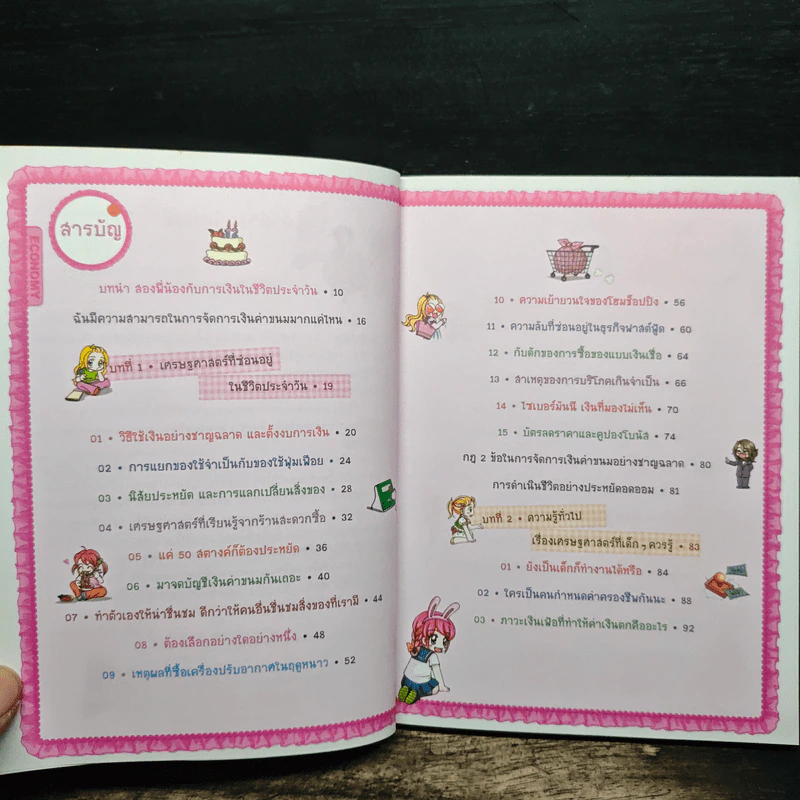 สารบัญ
ECONOMY
บทนำ สองพี่น้องกับการเงินในชีวิตประจำวัน • 10
ฉันมีความสามารถในการจัดการเงินค่าขนมมากแค่ไหน • 16
บทที่ 1 • เศรษฐศาสตร์ที่ซ่อนอยู่
ในชีวิตประจำวัน • 19
01 • วิธีใช้เงินอย่างชาญฉลาด และตั้งงบการเงิน • 20
02 • การแยกของใช้จำเป็นกับของใช้ฟุ่มเฟือย • 24
03 • นิสัยประหยัด และการแลกเปลี่ยนสิ่งของ • 28
04 • เศรษฐศาสตร์ที่เรียนรู้จากร้านสะดวกซื้อ • 32
05 • แค่ 50 สตางค์ก็ต้องประหยัด • 36
06 • มาจดบัญชีเงินค่าขนมกันเถอะ • 40
07 • ทำตัวเองให้น่าชื่นชม ดีกว่าให้คนอื่นชื่นชมสิ่งของที่เรามี • 44
08 • ต้องเลือกอย่างใดอย่างหนึ่ง • 48
09 • เหตุผลที่ซื้อเครื่องปรับอากาศในฤดูหนาว • 52
10 • ความเย้ายวนใจของโฮมช็อปปิง • 56
11 • ความลับที่ซ่อนอยู่ในธุรกิจฟาสต์ฟู้ด • 60
12 • กับดักของการซื้อของแบบเงินเชื่อ • 64
13 • สาเหตุของการบริโภคเกินจำเป็น • 66
14 • ไซเบอร์มันนี เงินที่มองไม่เห็น • 70
15 • บัตรลดราคาและคูปองโบนัส • 74
กฎ 2 ข้อในการจัดการเงินค่าขนมอย่างชาญฉลาด • 80
การดำเนินชีวิตอย่างประหยัดอดออม • 81
บทที่ 2 • ความรู้ทั่วไป
เรื่องเศรษฐศาสตร์ที่เด็ก ๆ ควรรู้ • 83
01 • ยังเป็นเด็กก็ทำงานได้หรือ • 84
02 • ใครเป็นคนกำหนดค่าครองชีพกันนะ • 88
03 • ภาวะเงินเฟ้อที่ทำให้ค่าเงินตกคืออะไร • 92